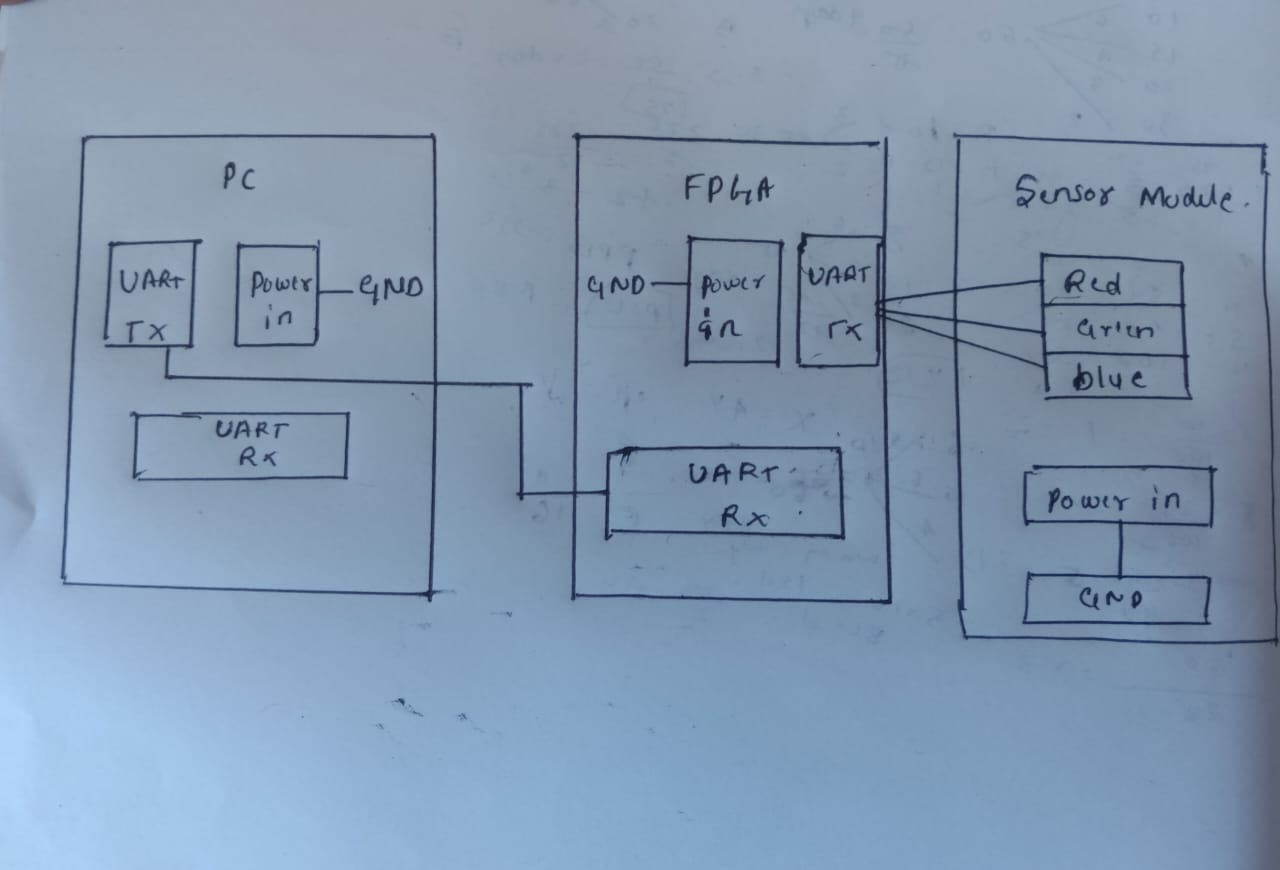 PC
UART
TX
Power
in
GND
UART
RX
FPGA
GND
Power
in
UART
TX
UART
RX
Sensor Module.
Red
Green
blue
Power in
GND